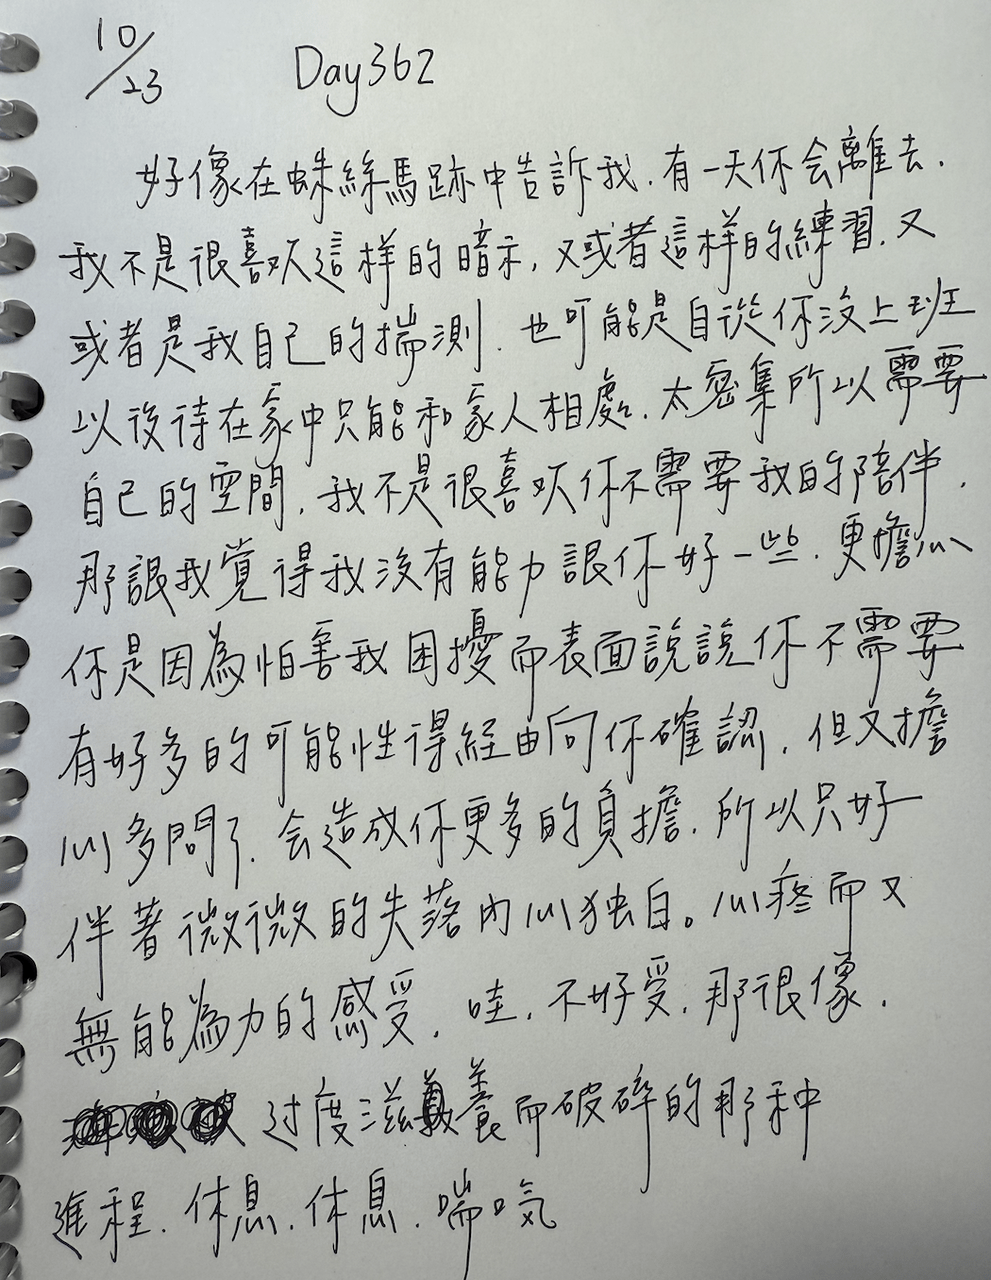 10/23 Day362
好像在蛛絲馬跡中告訴我.有一天你会離去.
我不是很喜欢這样的暗示,又或者這样的練習.又
或者是我自己的揣測.也可能是自從你沒上班
以後待在家中只能和家人相處.太密集所以需要
自己的空間.我不是很喜欢你不需要我的陪伴.
那讓我覺得我沒有能力讓你好一些.更擔心
你是因為怕害我困擾而表面說說你不需要
有好多的可能性得經由向你確認.但又擔
心多問了.会造成你更多的負擔.所以只好
伴著微微的失落內心独白。心疼而又
無能為力的感受.哇.不好受.那很像.
过度滋養而破碎的那种
進程.休息.休息.喘口気